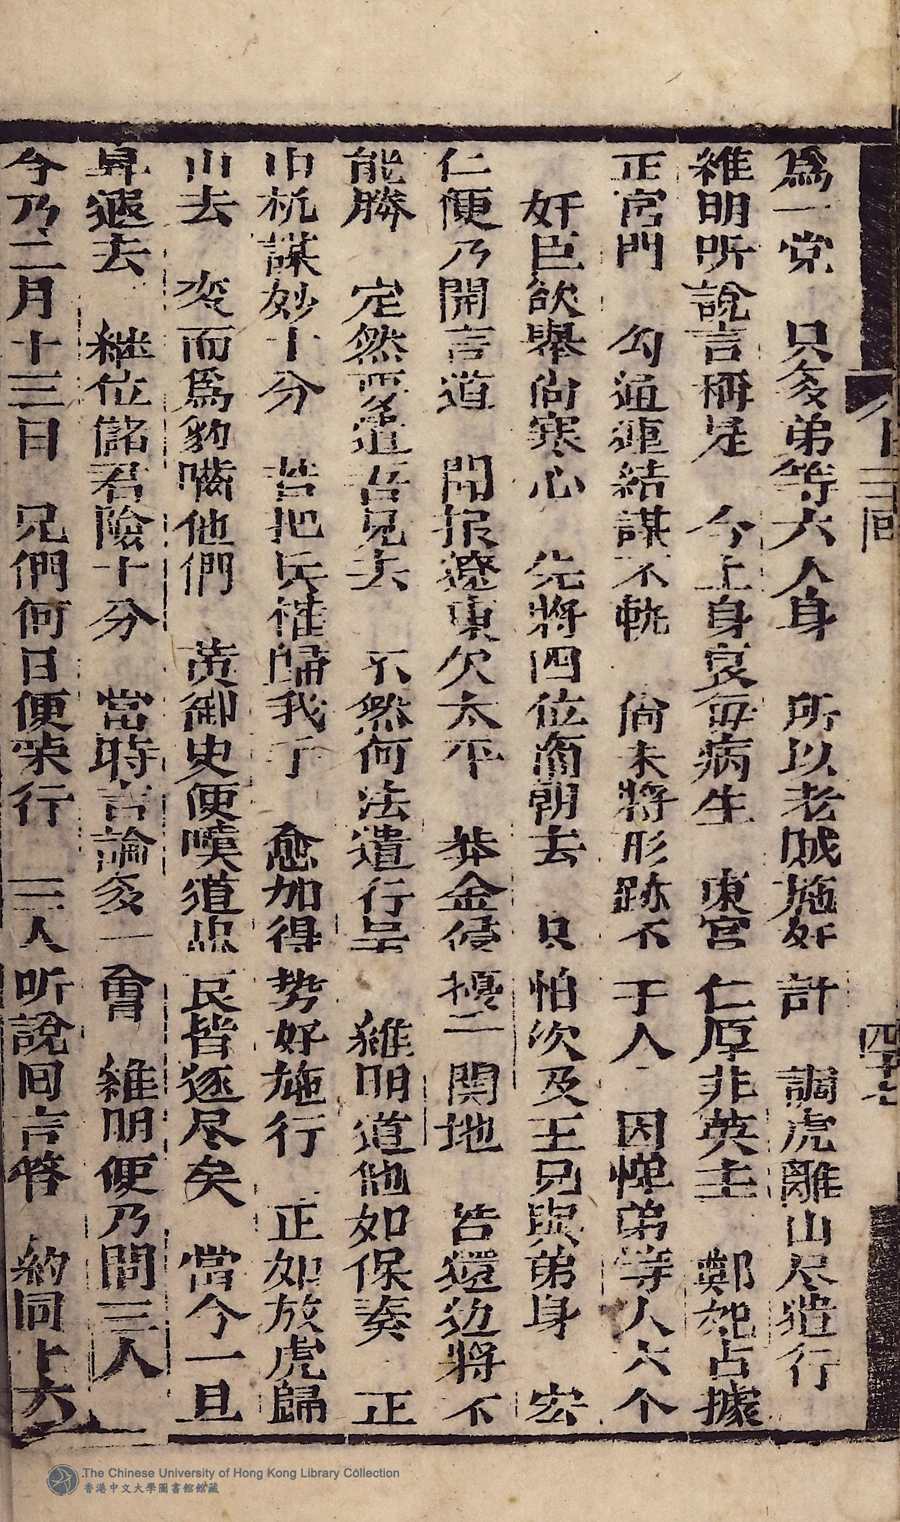 爲一党　只多弟等六人身　所以老贼施奸計　調虎離山尽遣行
維明听說言稱是　今上身衰每病生　東宮仁厚非英主　鄭妃占據
正宮門　勾通連結謀不軌　尚未將形跡不于人　因惮弟等人六个
奸臣欲舉尚寒心　先將四位蕳朝去　只怕次及王兄與弟身　宏
仁便乃開言道　聞报遼東欠太平　莽金侵擾二関地　皆還边將不
能勝　定然要遣吾兄去　不然何法遣行呈　維明道他如保奏　正
中机謀妙十分　若把兵權歸我手　愈加得势好施行　正如放虎歸
山去　变而爲豹嚙他們　黃御史便嘆道忠良皆逐尽矣　當今一旦
昇遐去　継位儲君險十分　當時言論多一會　維明便乃問三人
今乃二月十三日　兄們何日便荣行　三人听說回言答　約同上六
回
四十七
The Chinese University of Hong Kong Library Collection
香港中文大學圖書館館藏